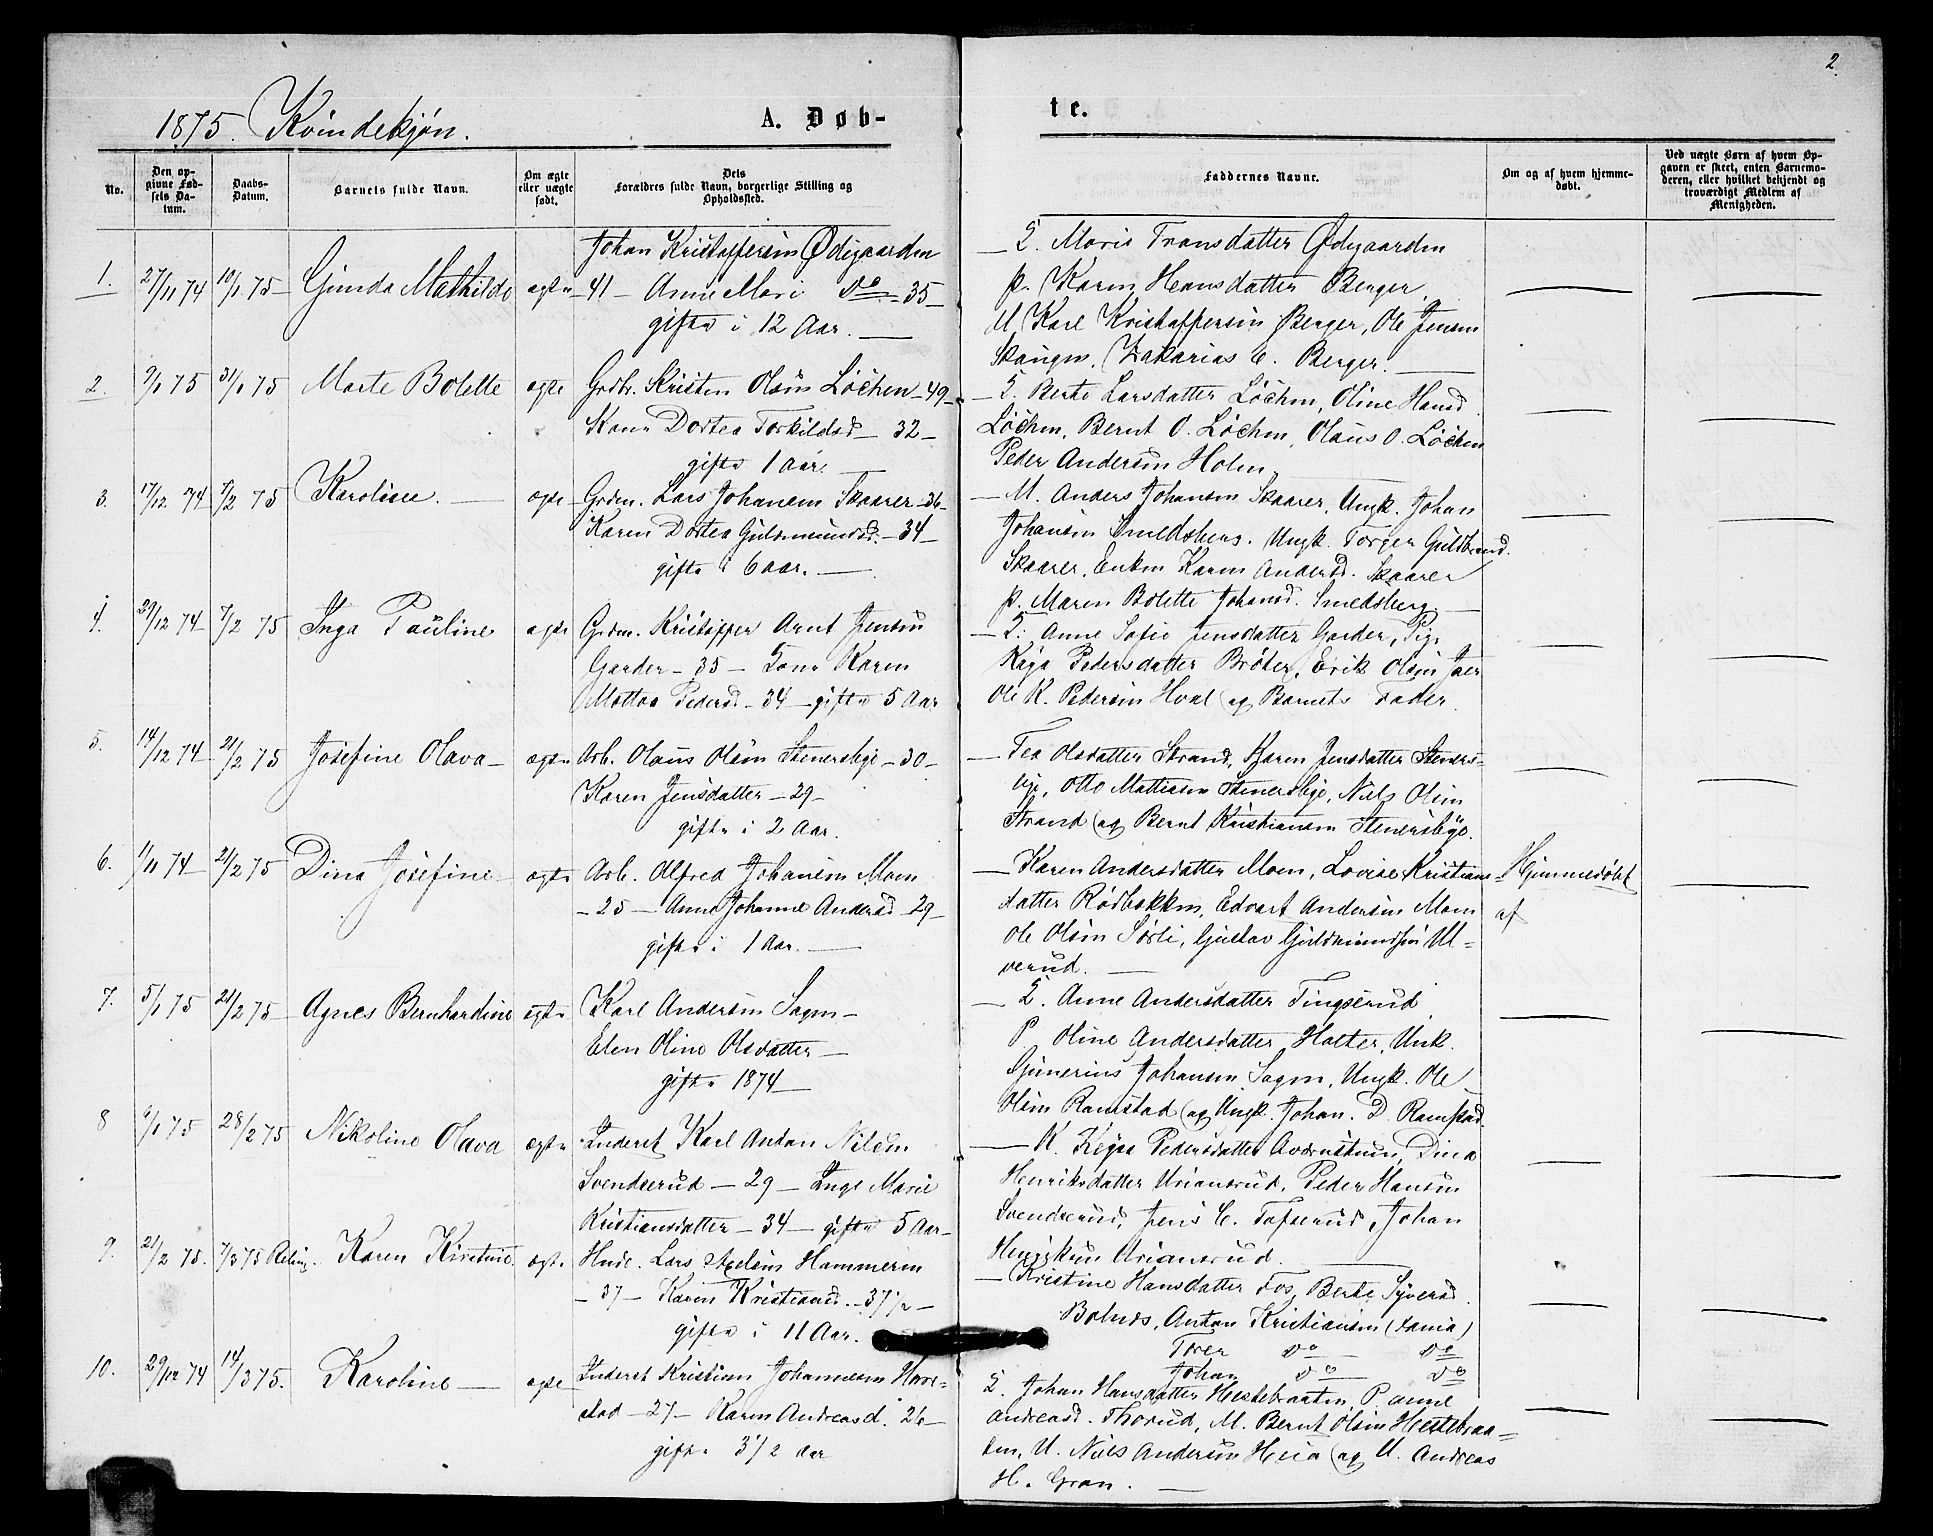 2.
1875. Kvindekjøn.
A. Døb-
te.
No.
Den op-
givne Fød-
sels Da-
tum.
Daabs-
Datum.
Barnets fulde Navn.
Om ægte
eller uægte
født.
Dets
Forældres fulde Navn, borgerlige Stilling og
Opholdssted.
Faddernes Navne.
Om og af hvem hjemme-
døbt.
Ved uægte Børn af hvem Op-
gaven er skeet, enten Barnemo-
deren, eller hvilket bekjendt og
troværdigt Medlem af
Menigheden.
1. 27/11 74 10/1 75 Gunda Mathilde ægte
Johan Kristoffersen Ødegaarden
41 – Anne Mari do – 35 –
gifte i 12 Aar.
E. Maris Fransdatter Ødegaarden
p. Karen Hansdatter Berger
M Karl Kristoffersen Berger, Ole Jensen
Skaugen, Zakarias C. Berger.
2. 9/1 75 31/1 75 Marte Bolette ægte
Grdbr. Kristen Olsen Løchen – 49 –
Kone Dortea Torkildsd – 32 –
gifte 1 Aar.
E. Berte Larsdatter Løchen, Oline Hansd
Løchen, Bernt O. Løchen, Olaus O. Løchen
Peder Andersen Holm
3. 17/12 74 7/2 75 Karoline. ægte
Grdm. Lars Johansen Skaarer – 36 –
Karen Dortea Guldmundsd. – 34 –
gifte i 6 aar.
M. Anders Johansen Skaarer, Ungk. Johan
Johansen Smedsberg. Ungk. Torger Guldbrand.
Skaarer, Enken Karen Andersd. Skaarer
p. Maren Bolette Johansd. Smedsberg.
4. 29/12 74 7/2 75 Inga Pauline ægte
Grdm. Kristoffer Arnt Jensen
Garder – 35 – Kone Karen
Mattea Pedersd. – 34 – gifte 5 Aar
E. Anne Sofie Jensdatter Garder, Pig.
Kaja Pedersdatter Brøter, Erik Olsen Jaer
Ole K. Pedersen Hval og Barnets Fader.
5. 14/12 74 21/2 75 Josefine Olava – ægte
Arb. Olaus Olsen Stenersbye – 30 –
Karen Jensdatter – 29 –
gifte i 2 Aar.
Tea Olsdatter Strand, Karen Jensdatter Steners-
bye, Otto Mattisen Stenersbye, Niels Olsen
Strand og Bernt Kristiansen Stenersbye.
6. 1/11 74 21/2 75 Dina Josefine – ægte
Arb. Alfred Johansen Moen
– 25 – Anne Johanne Andersd – 29 –
gifte i 1 Aar.
Karen Andersdatter Moen, Lovise Kristians-
datter Rødbakken, Edvart Andersen Moen
Ole Olsen Sørli, Gustav Guldmundsen Ul-
verud.
Hjemmedøbt
af
7. 5/1 75 21/2 75 Agnes Bernhardine ægte
Karl Andersen Sagen –
Elen Oline Olsdatter –
gifte 1874
E. Anne Andersdatter Tingserud
P. Oline Andersdatter Holter, Unk.
Gunerius Johansen Sagen, Ungk. Ole
Olsen Ramstad og Ungk. Johan. D. Ramstad.
8 6/1 75 28/2 75 Nikoline Olava ægte
Inderst Karl Anton Nilsen
Svendserud – 29 – Inge Marie
Kristiansdatter – 34 – gifte 5 Aar –
K. Pedersdatter Dina
Henriksdatter Uriansrud, Peder Hansen
Svendserud, Jens C. Tofserud, Johan
Henriksen Uriansrud.
9. 21/2 75. 7/3 75 Karen Kirstine ægte
Husm. Lars Axelsen Hammeren
– 37 – Karen Kristiansd. – 37 1/2 –
gifte i 11 Aar.
Kristine Hansdatter Fos, Berte Syversd.
Anton Kristiansen
Torer do do
Johan do do
10. 29/12 74 14/3 75. Karoline – ægte
Inderst Kristian Johannesen Hove-
stad – 27 – Karen Andreasd. 26 –
gifte 3 1/2 Aar
E. Johan Hansdatter Hestebraaten, P. Anne
Andreasd. Thorud, M. Bernt Olsen Hestebraa-
ten, U. Niels Andersen Heia og U. Andreas
H. Gran.